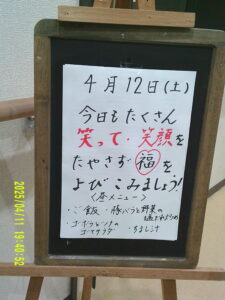 4月12日(土)
今日もたくさん
笑って・笑顔を
たやさず福を
よびこみましょう!
〈昼メニュー〉
・ご飯・豚バラと野菜の
ゴマサラダ
2025/04/11 19:40:52